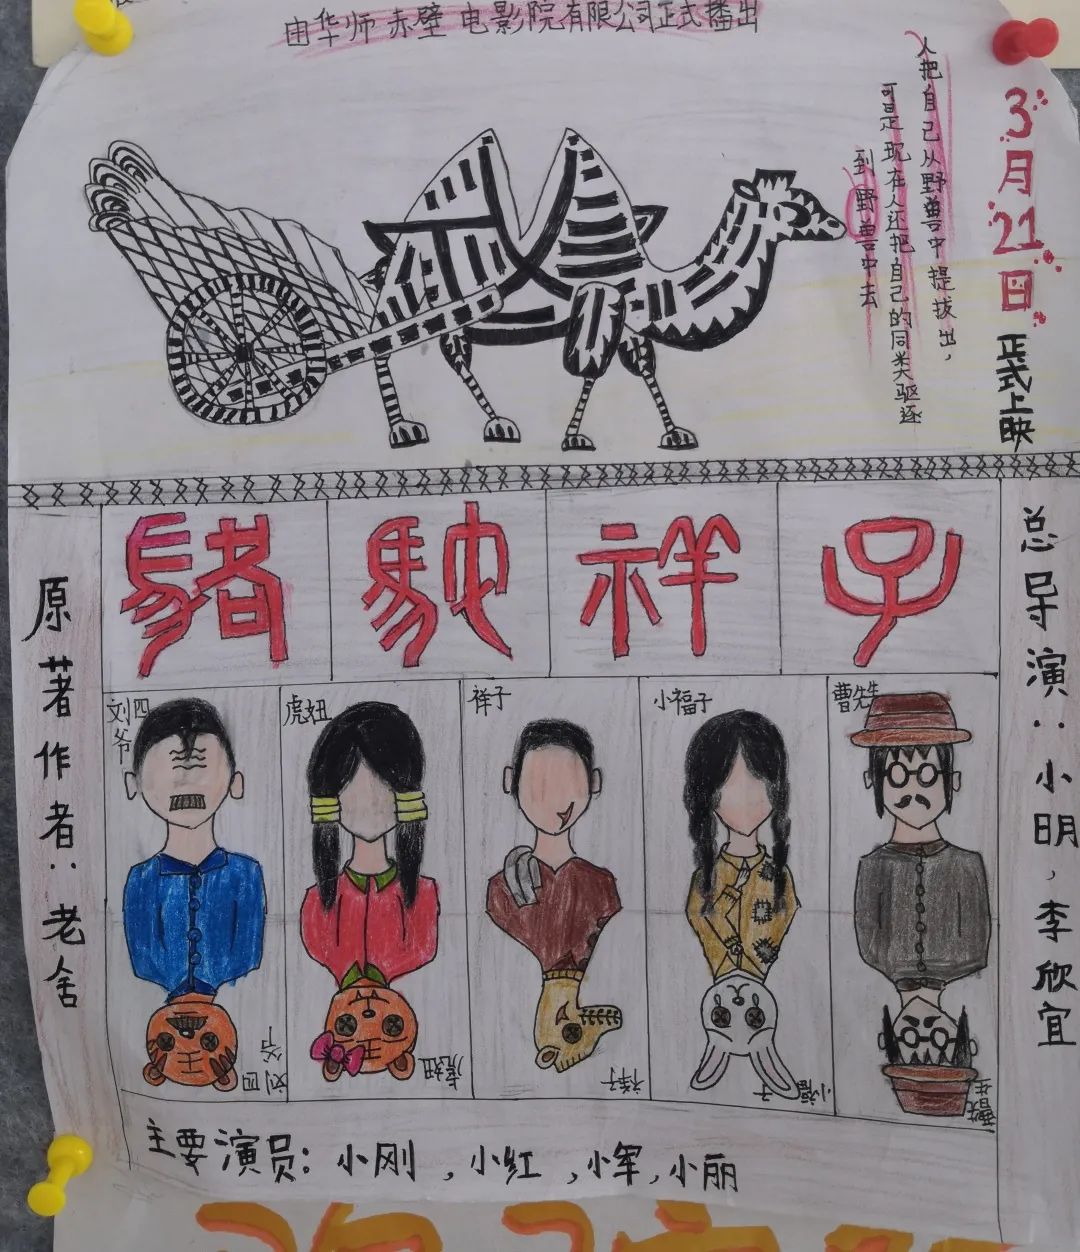 由华师赤壁电影院有限公司正式播出
3月21日正式上映
人把自己从野兽中提拔出，
可是现在人还把自己的同类驱逐
到野兽中去
骆驼祥子
总导演：小明，李欣宜
原著作者：老舍
刘四爷
虎妞
祥子
小福子
曹先生
刘四爷
虎妞
祥子
小福子
曹先生
主要演员：小刚，小红，小军，小丽